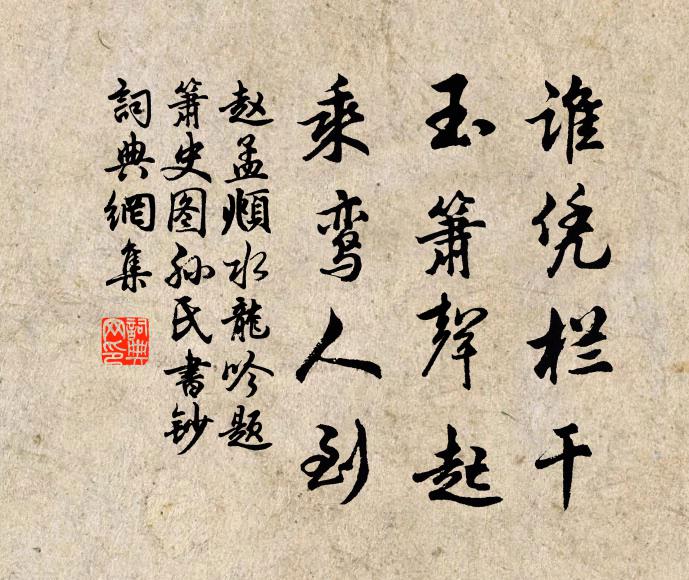 谁凭栏干
玉箫聲起
乘鸾人到
赵孟頫水龍吟题
箫史图孙氏書鈔
詞典網集
詞典网印